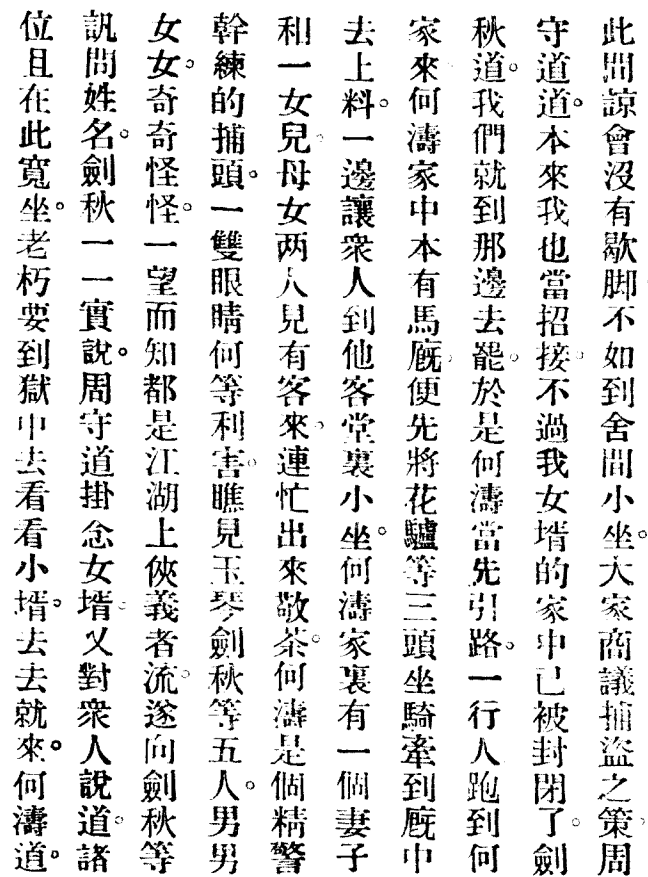 此間諒會沒有歇脚不如到舍間小坐。大家商議捕盜之策。周
守道道。本來我也當招接。不過我女壻的家中已被封閉了。劍
秋道。我們就到那邊去罷。於是何濤當先引路。一行人跑到何
家來何濤家中本有馬廐。便先將花驢等三頭坐騎牽到廐中
去上料。一邊讓衆人到他客堂裏小坐。何濤家裏有一個妻子
和一女兒。母女两人見有客來。連忙出來敬茶。何濤是個精警
幹練的捕頭。一雙眼睛何等利害。瞧見玉琴劍秋等五人。男男
女女。奇奇怪怪。一望而知都是江湖上俠義者流。遂向劍秋等
訊問姓名。劍秋一一實說。周守道掛念女壻。又對衆人說道。諸
位且在此寬坐。老朽要到獄中去看看小壻。去去就來。何濤道。